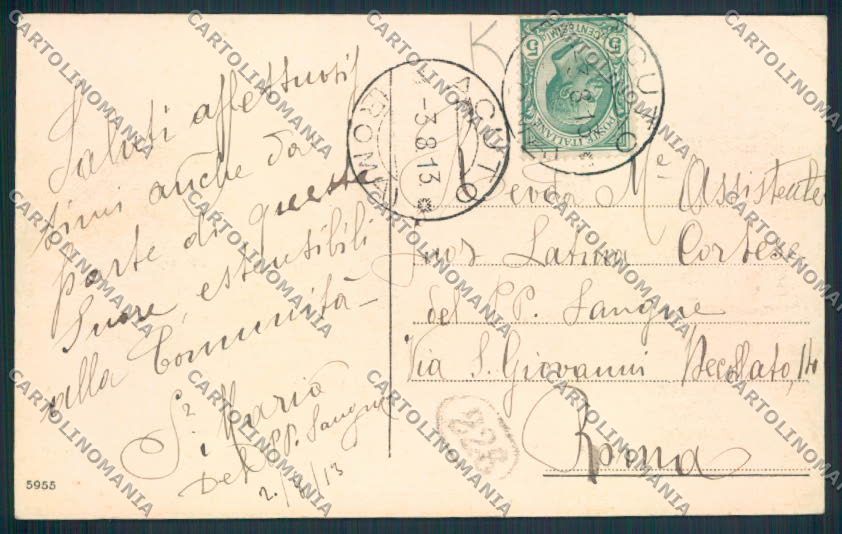 Saluti affettuosissimi
anche da
parte di queste
Suore, estensibili
alla Comunità
S.ª Maria
Del PP. Sangue
5955
ACUTO
(ROMA)
-3.8.13.
POSTE ITALIANE
CENTESIMI
5
K
Revda Me Assistente
Suor Latina Cortese
del PP. Sangue
Via S. Giovanni Decollato, 14
Roma
CARTOLINOMANIA